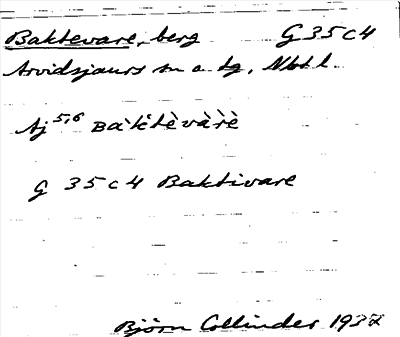 Baktevare, berg G 35 c 4
Arvidsjaurs sn o. tg, Nbtl.
Aj 5,6
G 35 c 4 Baktivare
Björn Collinder 1937